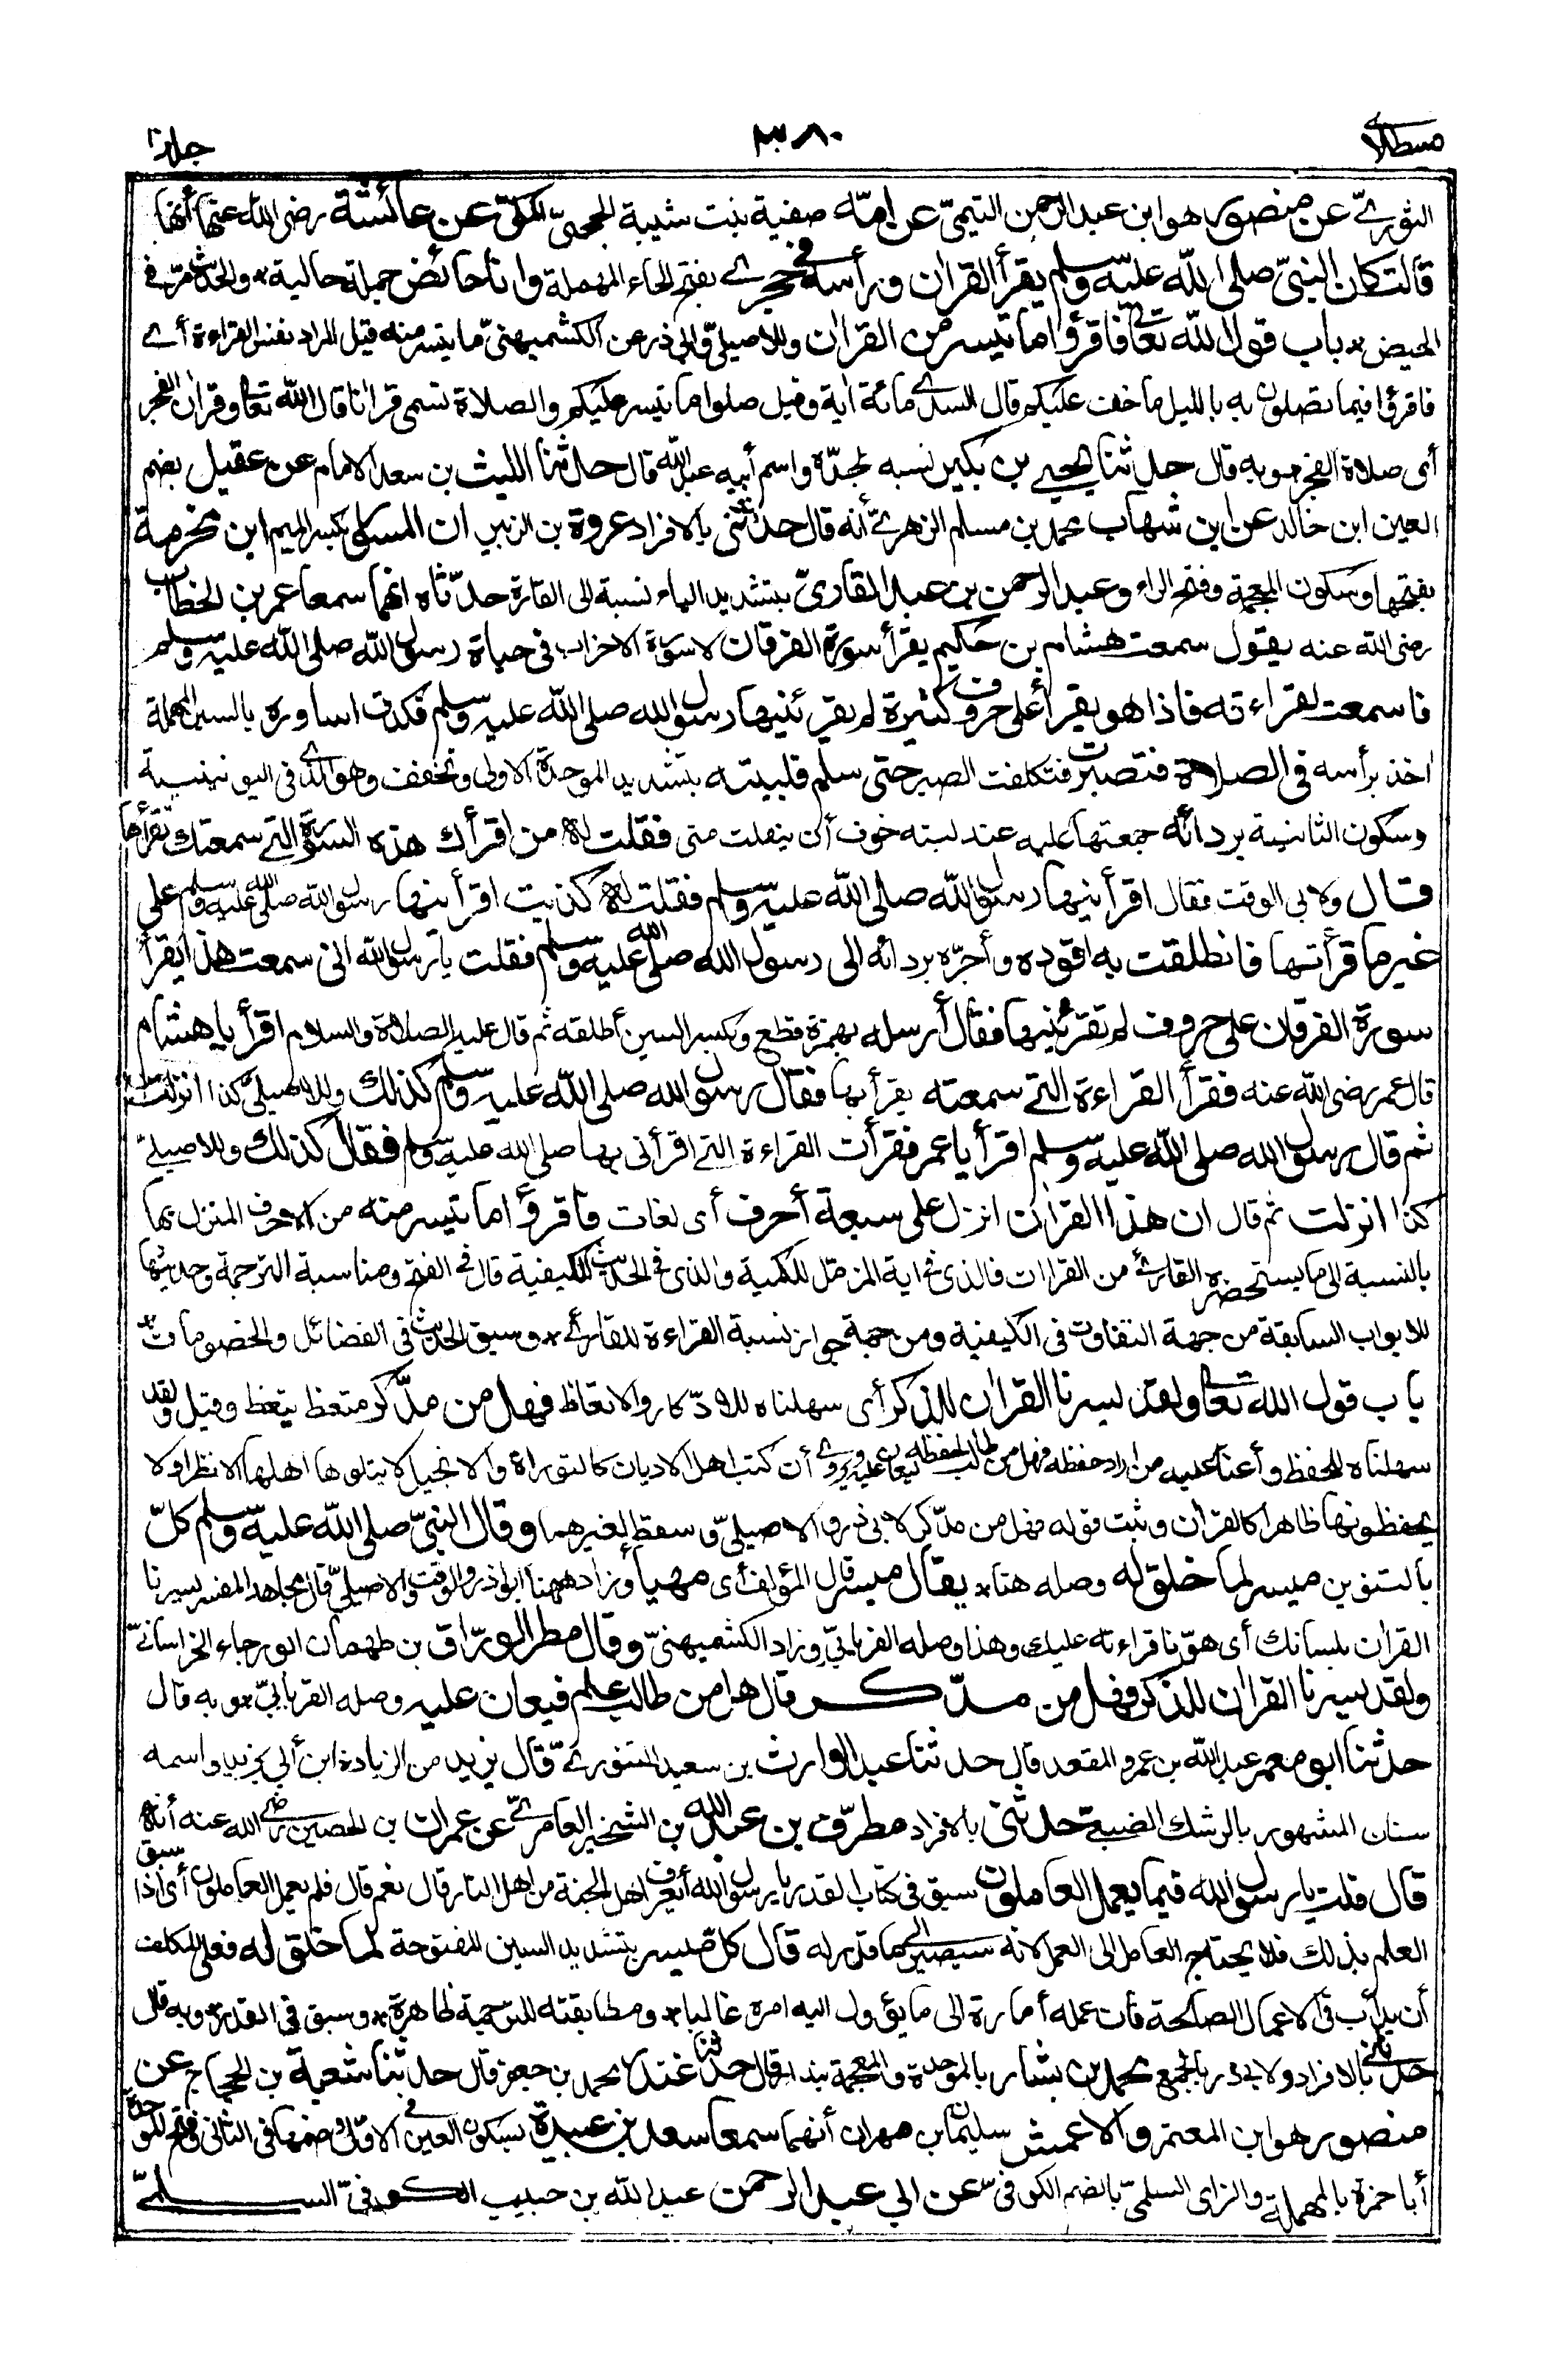 قسطلانى ٣٨٠ جلد١٠
الثورىّ عن منصور هو ابن عبد الرحمن التيمىّ عن امّه صفية بنت شيبة الحجبىّ المكىّ عن عائشة رضى الله عنها أنها
قالت كان النبىّ صلى الله عليه وسلم يقرأ القرآن ورأسه فى حجرى بفتح الحاء المهملة وانا حائض جملة حالية * والحديث مرّ فى
الحيض * باب قول الله تعالى فاقرؤا ما تيسر من القرآن وللاصيلىّ وابى ذر عن الكشميهنىّ ما تيسر منه قيل المراد نفس القراءة أى
فاقرؤا فيما تصلون به بالليل ما خف عليكم قال السدى مائة آية وقيل صلوا ما تيسر عليكم والصلاة تسمى قرآنا قال الله تعالى وقرآن الفجر
أى صلاة الفجر * وبه قال حدثنا يحيى بن بكير نسبه لجدّه واسم أبيه عبد الله قال حدثنا الليث بن سعد الامام عن عقيل بضم
العين ابن خالد عن ابن شهاب محمد بن مسلم الزهرىّ أنه قال حدثنى بالافراد عروة بن الزبير ان المسور بكسر الميم ابن مخرمة
بفتحها وسكون المعجمة وفتح الراء وعبد الرحمن بن عبد القارىّ بتشديد الياء نسبة الى القارة حدّثاه انهما سمعا عمر بن الخطاب
رضى الله عنه يقول سمعت هشام بن حكيم يقرأ سورة الفرقان لا سورة الاحزاب فى حياة رسول الله صلى الله عليه وسلم
فاسمعت لقراءته فاذا هو يقرأ على حروف كثيرة لم يقرئنيها رسول الله صلى الله عليه وسلم فكدت اساوره بالسين المهملة
اخذ برأسه فى الصلاة فتصبرت فتكلفت الصبر حتى سلم فلببته بتشديد الموحدة الاولى وتخفف وهو الذى فى اليونينية
وسكون الثانية بردائه جمعتها عليه عند لبته خوف أن ينفلت منى فقلت له من اقرأك هذه السورة التى سمعتك تقرأها
قال ولابى الوقت فقال اقرأنيها رسول الله صلى الله عليه وسلم فقلت له كذبت اقرأنيها رسول الله صلى الله عليه وسلم على
غير ما قرأتها فانطلقت به اقوده وأجرّه بردائه الى رسول الله صلى الله عليه وسلم فقلت يا رسول الله انى سمعت هذا يقرأ
سورة الفرقان على حروف لم تقرئنيها فقال أرسله بهمزة قطع وبكسر السين أطلقه ثم قال عليه الصلاة والسلام اقرأ يا هشام
قال عمر رضى الله عنه فقرأ القراءة التى سمعته يقرأ بها فقال رسول الله صلى الله عليه وسلم كذلك وللاصيلىّ كذا انزلت
ثم قال رسول الله صلى الله عليه وسلم اقرأ يا عمر فقرأت القراءة التى اقرأنى بها صلى الله عليه وسلم فقال كذلك وللاصيلىّ
كذا انزلت ثم قال ان هذا القرآن انزل على سبعة أحرف أى لغات فاقرؤا ما تيسر منه من الاحرف المنزل بها
بالنسبة الى ما يستحضره القارئ من القراآت فالذى فى آية المزمّل للكمية والذى فى الحديث للكيفية قال فى الفتح ومناسبة الترجمة وحديثها
للابواب السابقة من جهة التفاوت فى الكيفية ومن جهة جواز نسبة القراءة للقارئ * وسبق الحديث فى الفضائل والخصومات *
باب قول الله تعالى ولقد يسرنا القرآن للذكر أى سهلناه للادّكار والاتعاظ فهل من مدّكر متعظ يتعظ وقيل ولقد
سهلناه للحفظ وأعنا عليه من اراد حفظه فهل من طالب لحفظه ليعان عليه ويروى أن كتب اهل الاديان كالتوراة والانجيل لا يتلوها اهلها الا نظرا ولا
يحفظونها ظاهرا كالقرآن وثبت قوله فهل من مدّكر لابى ذر والاصيلىّ وسقط لغيرهما وقال النبىّ صلى الله عليه وسلم كلّ
بالتنوين ميسر لما خلق له وصله هنا * يقال ميسر قال المؤلف أى مهيأ وزاد ههنا ابوا ذر والوقت والاصيلىّ قال مجاهد المفسر يسرنا
القرآن بلسانك أى هوّنا قراءته عليك وهذا وصله الفريابىّ وزاد الكشميهنىّ وقال مطر الورّاق بن طهمان ابو رجاء الخراسانىّ
ولقد يسرنا القرآن للذكر فهل من مدّكر قال هل من طالب علم فيعان عليه وصله الفريابىّ * وبه قال
حدثنا ابو معمر عبد الله بن عمرو المقعد قال حدثنا عبد الوارث بن سعيد التنورىّ قال يزيد من الزيادة ابن أبى يزيد واسمه
سنان المشهور بالرشك الضبعىّ حدثنى بالافراد مطرّف بن عبد الله بن الشخير العامرىّ عن عمران بن الحصين رضى الله عنه أنه
قال قلت يا رسول الله فيما يعمل العاملون سبق فى كتاب القدر يا رسول الله أيعرف اهل الجنة من اهل النار قال نعم قال فلم يعمل العاملون أى اذا سبق
العلم بذلك فلا يحتاج العامل الى العمل لانه سيصير الى ما قدر له قال كلّ ميسر بتشديد السين المفتوحة لما خلق له فعلى المكلف
أن يدأب فى الاعمال الصالحة فان عمله أمارة الى ما يؤول اليه امره غالبا * ومطابقته للترجمة ظاهرة * وسبق فى القدر * وبه قال
حدثنى بالافراد ولابى ذر بالجمع محمد بن بشار بالموحدة والمعجمة بندار قال حدثنا غندر محمد بن جعفر قال حدثنا شعبة بن الحجاج عن
منصور هو ابن المعتمر والاعمش سليمان بن مهران أنهما سمعا سعد بن عبيدة بسكون العين فى الاوّل وضمها فى الثانى وفتح الموحدة
أبا حمزة بالمهملة والزاى السلمىّ بالضم الكوفىّ عن ابى عبد الرحمن عبد الله بن حبيب الكوفىّ السلمىّ